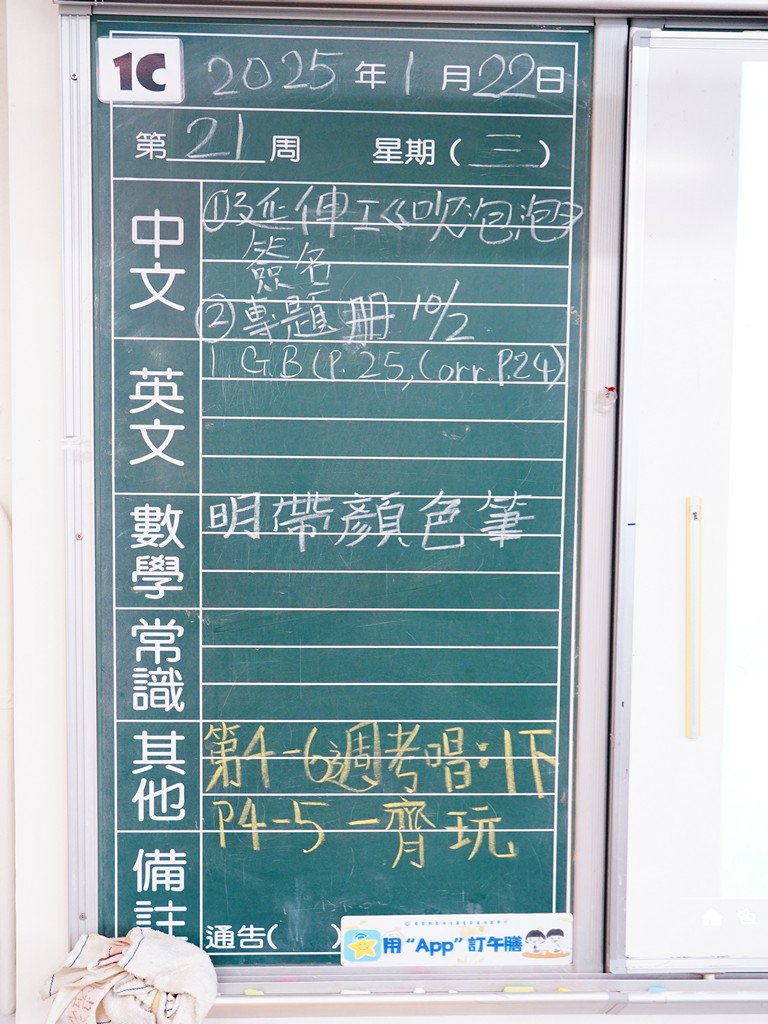 1C 2025年1月22日
第21周 星期(三)
中文
①延伸工《吹泡泡》
簽名
②專題冊 10/2
英文
1 G.B (P.25, Corr. P.24)
數學
明帶顏色筆
常識
其他
第4-6週考唱:1下
P4-5 一齊玩
備註
通告( )
用“App”訂午膳